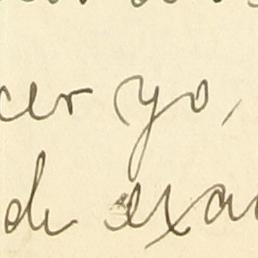 cer yo,
de exa